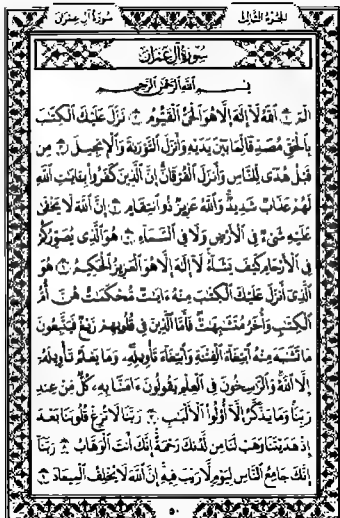 سورة آل عمران الجزء الثالث
سورة آل عمران
بسم الله الرحمن الرحيم
الٓمٓ ١ ٱللَّهُ لَآ إِلَٰهَ إِلَّا هُوَ ٱلْحَىُّ ٱلْقَيُّومُ ٢ نَزَّلَ عَلَيْكَ ٱلْكِتَٰبَ
بِٱلْحَقِّ مُصَدِّقًا لِّمَا بَيْنَ يَدَيْهِ وَأَنزَلَ ٱلتَّوْرَىٰةَ وَٱلْإِنجِيلَ ٣ مِن
قَبْلُ هُدًى لِّلنَّاسِ وَأَنزَلَ ٱلْفُرْقَانَ إِنَّ ٱلَّذِينَ كَفَرُوا۟ بِـَٔايَٰتِ ٱللَّهِ
لَهُمْ عَذَابٌ شَدِيدٌ وَٱللَّهُ عَزِيزٌ ذُو ٱنتِقَامٍ ٤ إِنَّ ٱللَّهَ لَا يَخْفَىٰ
عَلَيْهِ شَىْءٌ فِى ٱلْأَرْضِ وَلَا فِى ٱلسَّمَآءِ ٥ هُوَ ٱلَّذِى يُصَوِّرُكُمْ
فِى ٱلْأَرْحَامِ كَيْفَ يَشَآءُ لَآ إِلَٰهَ إِلَّا هُوَ ٱلْعَزِيزُ ٱلْحَكِيمُ ٦ هُوَ
ٱلَّذِىٓ أَنزَلَ عَلَيْكَ ٱلْكِتَٰبَ مِنْهُ ءَايَٰتٌ مُّحْكَمَٰتٌ هُنَّ أُمُّ
ٱلْكِتَٰبِ وَأُخَرُ مُتَشَٰبِهَٰتٌ فَأَمَّا ٱلَّذِينَ فِى قُلُوبِهِمْ زَيْغٌ فَيَتَّبِعُونَ
مَا تَشَٰبَهَ مِنْهُ ٱبْتِغَآءَ ٱلْفِتْنَةِ وَٱبْتِغَآءَ تَأْوِيلِهِۦ وَمَا يَعْلَمُ تَأْوِيلَهُۥٓ
إِلَّا ٱللَّهُ وَٱلرَّٰسِخُونَ فِى ٱلْعِلْمِ يَقُولُونَ ءَامَنَّا بِهِۦ كُلٌّ مِّنْ عِندِ
رَبِّنَا وَمَا يَذَّكَّرُ إِلَّآ أُو۟لُوا۟ ٱلْأَلْبَٰبِ ٧ رَبَّنَا لَا تُزِغْ قُلُوبَنَا بَعْدَ
إِذْ هَدَيْتَنَا وَهَبْ لَنَا مِن لَّدُنكَ رَحْمَةً إِنَّكَ أَنتَ ٱلْوَهَّابُ ٨ رَبَّنَآ
إِنَّكَ جَامِعُ ٱلنَّاسِ لِيَوْمٍ لَّا رَيْبَ فِيهِ إِنَّ ٱللَّهَ لَا يُخْلِفُ ٱلْمِيعَادَ ٩
٥٠